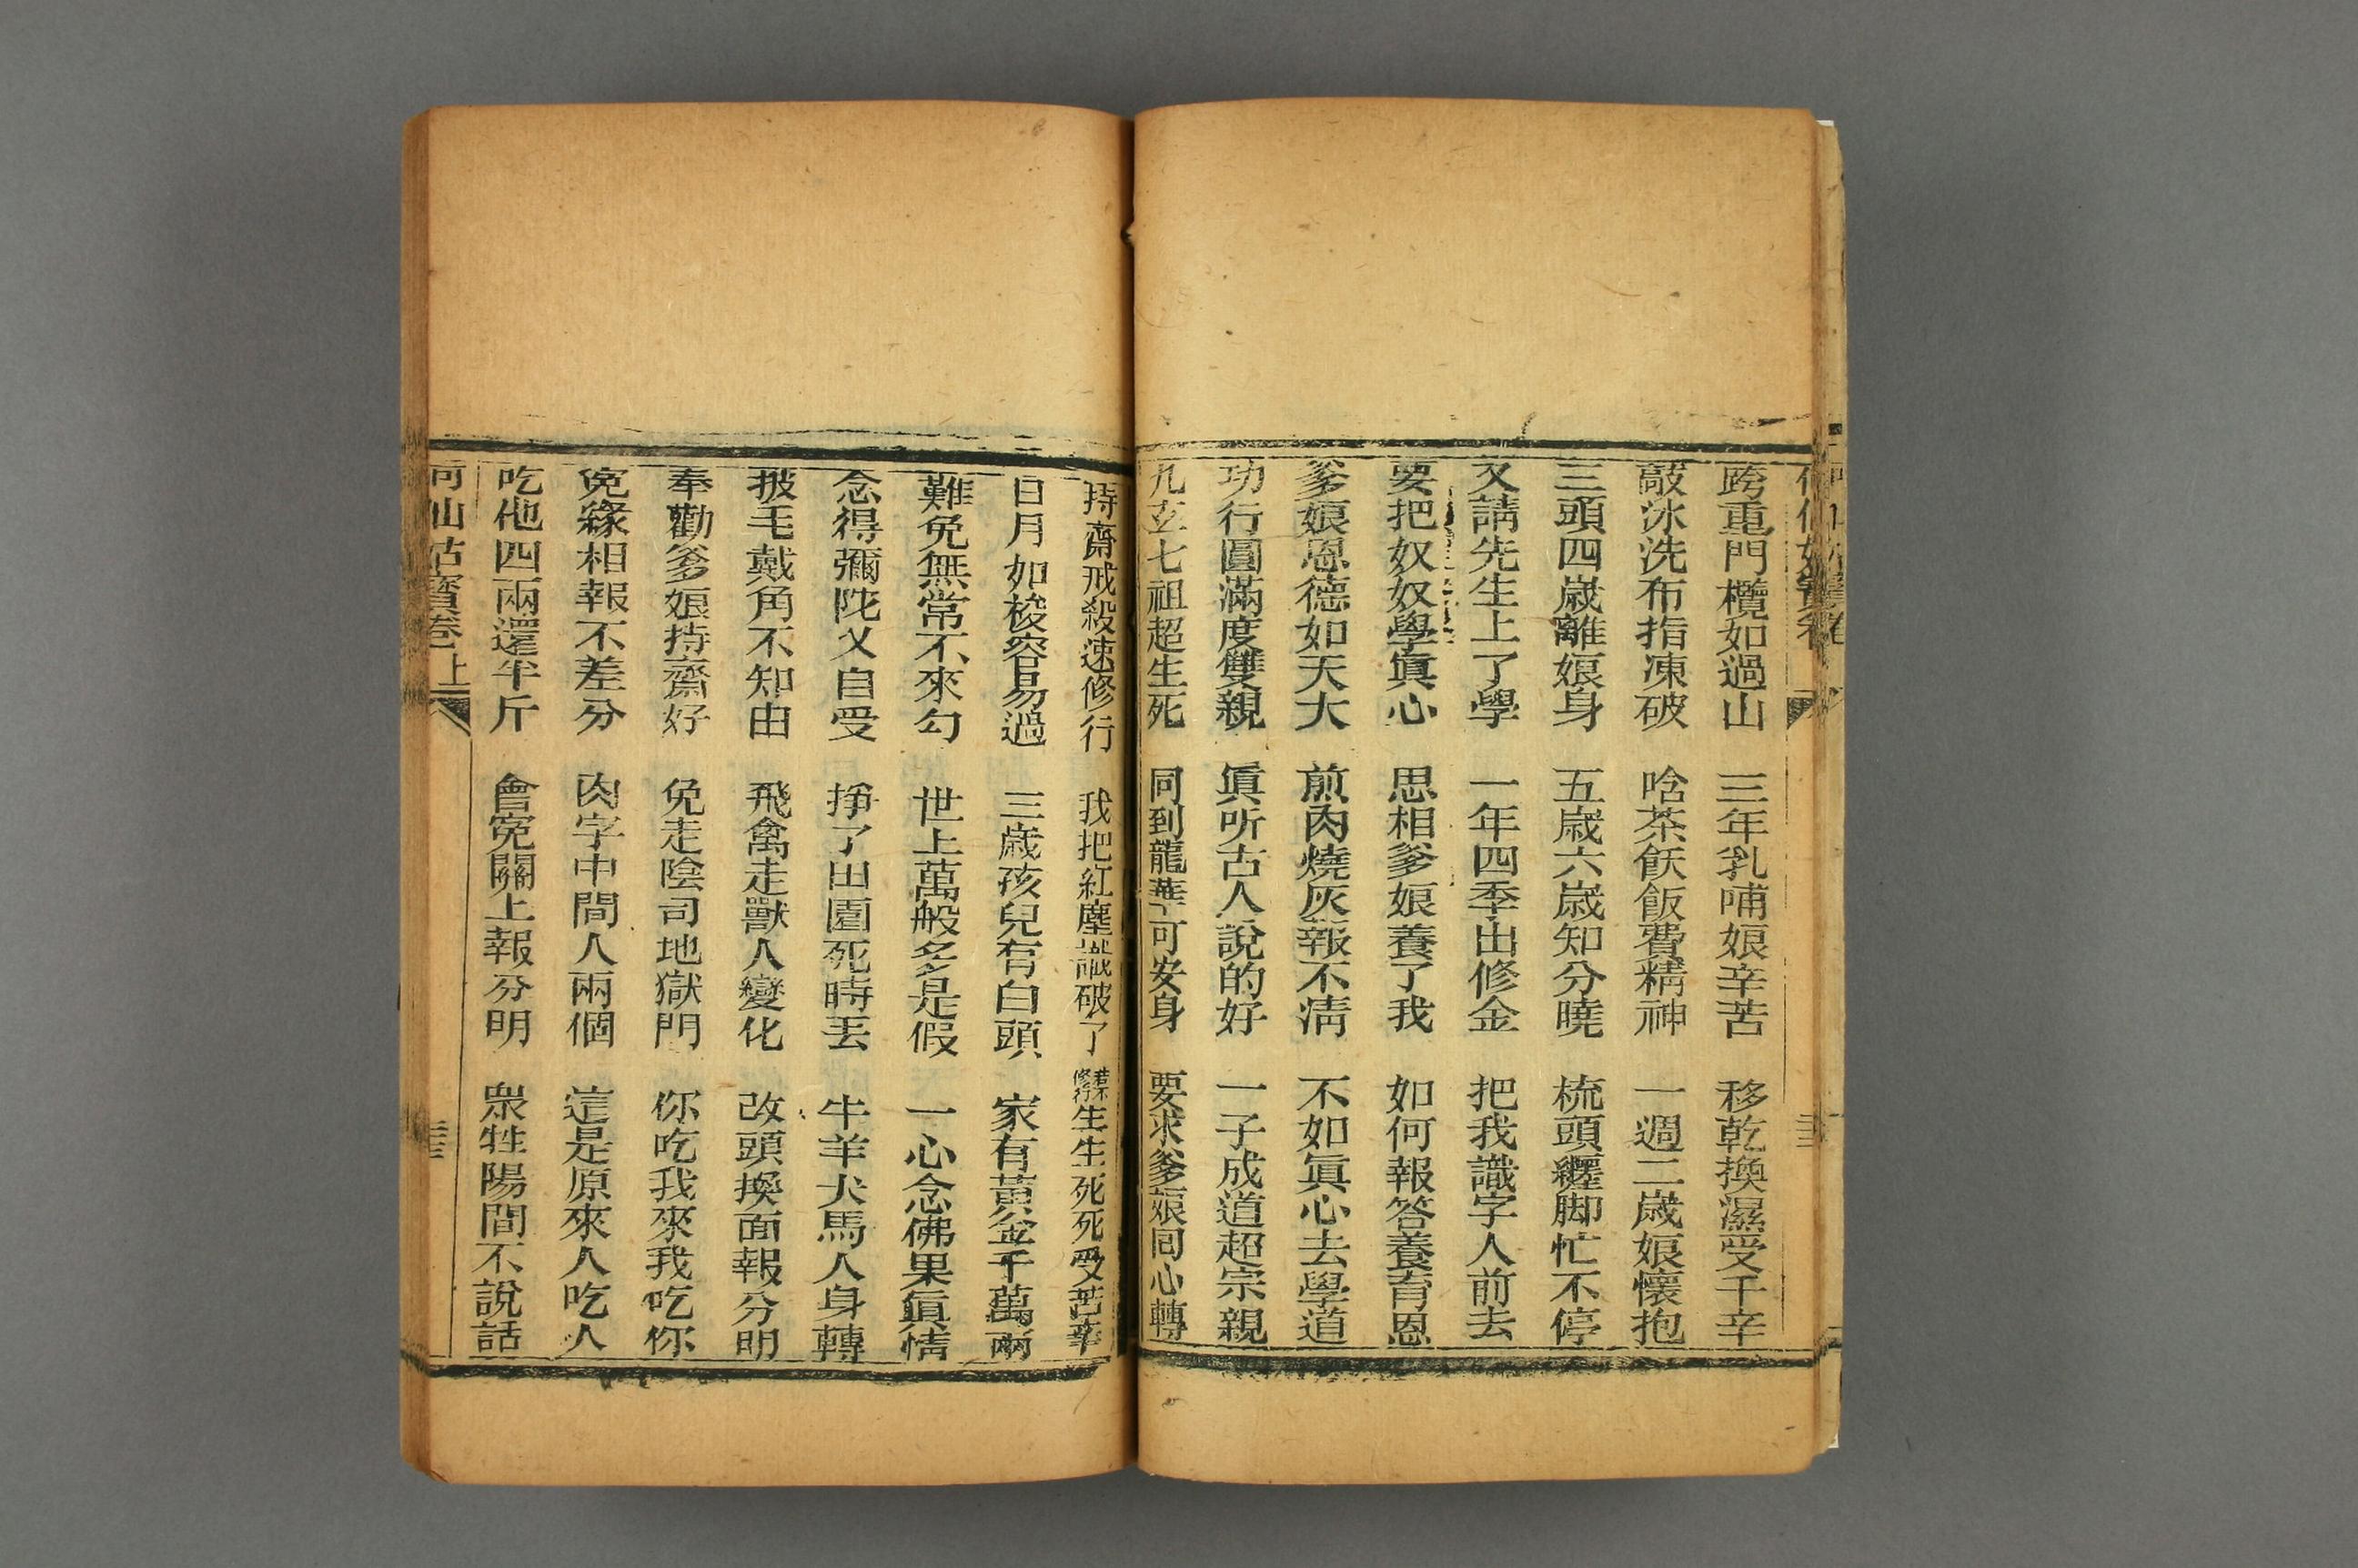 跨重門檻如過山　三年乳哺娘辛苦　移乾換濕受千辛
敲冰洗布指凍破　啥茶飫飯費精神　一週二歲娘懷抱
三頭四歲離娘身　五歲六歲知分曉　梳頭纏脚忙不停
又請先生上了學　一年四季出修金　把我識字人前去
要把奴奴學眞心　思相爹娘養了我　如何報答養育恩
爹娘恩德如天大　煎肉燒灰報不清　不如眞心去學道
功行圓滿度雙親　眞听古人說的好　一子成道超宗親
九玄七祖超生死　同到龍華可安身　要求爹娘同心轉
持齋戒殺速修行　我把紅塵識破了　若不修行生生死死受苦辛
日月如梭容易過　三歲孩兒有白頭　家有黃金千萬兩
難免無常不來勾　世上萬般多是假　一心念佛果眞情
念得彌陀又自受　掙了田園死時丟　牛羊犬馬人身轉
披毛戴角不知由　飛禽走獸人變化　改頭換面報分明
奉勸爹娘持齋好　免走陰司地獄門　你吃我來我吃你
寃緣相報不差分　肉字中間人兩個　這是原來人吃人
吃他四兩還半斤　會寃關上報分明　衆牲陽間不說話
何仙姑寶卷　上